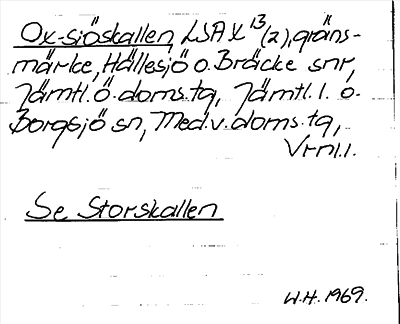 Ox-sjöskallen, LSA X 13/(2), gräns-
märke, Hällesjö o. Bräcke snr,
Jämtl. Ö. doms. tg, Jämtl. l. o.
Borgsjö sn, Med. v. doms. tg,
Vrnl. l.
Se Storskallen
W.H. 1969.